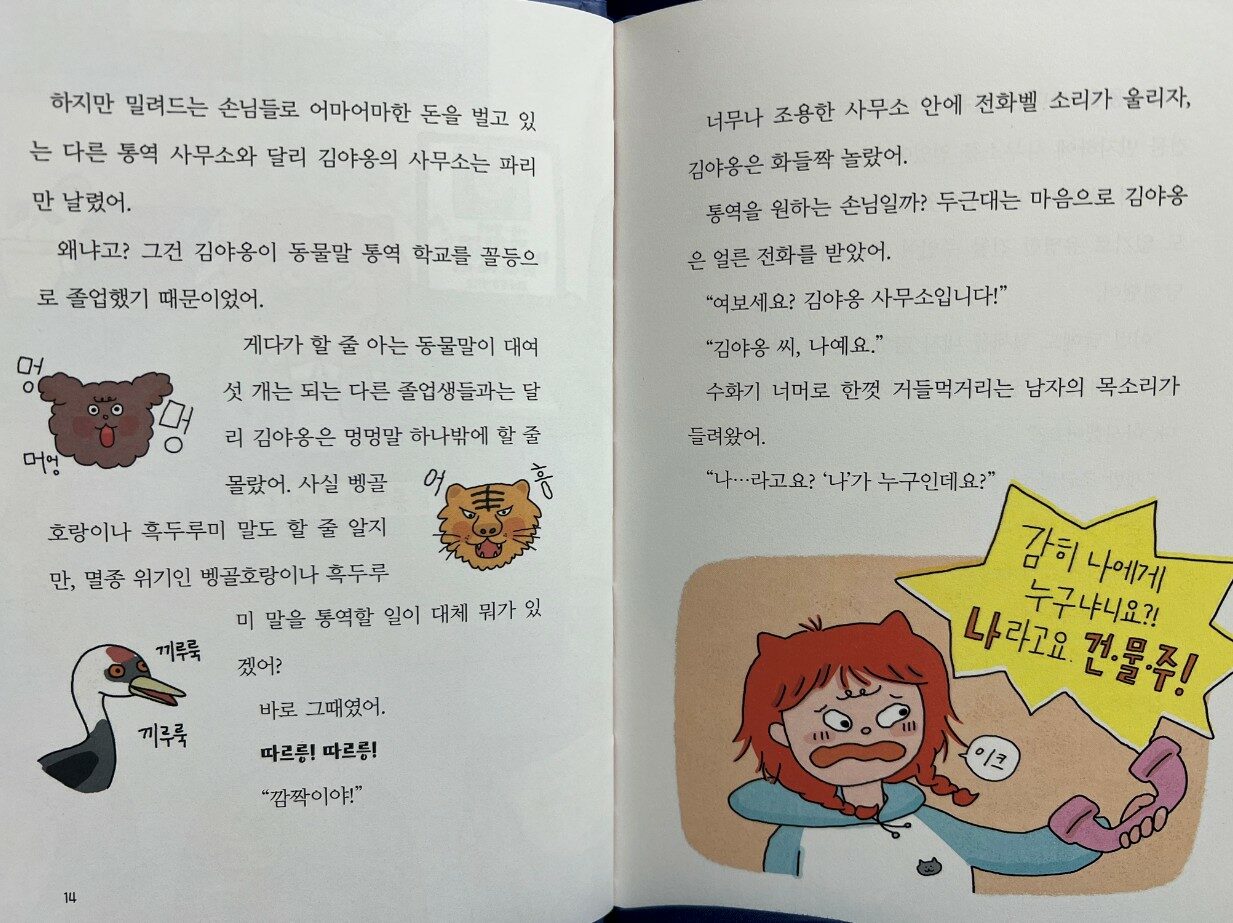 하지만 밀려드는 손님들로 어마어마한 돈을 벌고 있
는 다른 통역 사무소와 달리 김야옹의 사무소는 파리
만 날렸어.
왜냐고? 그건 김야옹이 동물말 통역 학교를 꼴등으
로 졸업했기 때문이었어.
게다가 할 줄 아는 동물말이 대여
섯 개는 되는 다른 졸업생들과는 달
리 김야옹은 멍멍말 하나밖에 할 줄
몰랐어. 사실 벵골
호랑이나 흑두루미 말도 할 줄 알지
만, 멸종 위기인 벵골호랑이나 흑두루
미 말을 통역할 일이 대체 뭐가 있
겠어?
바로 그때였어.
따르릉! 따르릉!
“깜짝이야!”
멍
멍
머엉
어
흥
끼루룩
끼루룩
14
너무나 조용한 사무소 안에 전화벨 소리가 울리자,
김야옹은 화들짝 놀랐어.
통역을 원하는 손님일까? 두근대는 마음으로 김야옹
은 얼른 전화를 받았어.
“여보세요? 김야옹 사무소입니다!”
“김야옹 씨, 나예요.”
수화기 너머로 한껏 거들먹거리는 남자의 목소리가
들려왔어.
“나…라고요? ‘나’가 누구인데요?”
감히 나에게
누구냐니요?!
나라고요. 건·물·주!
이크